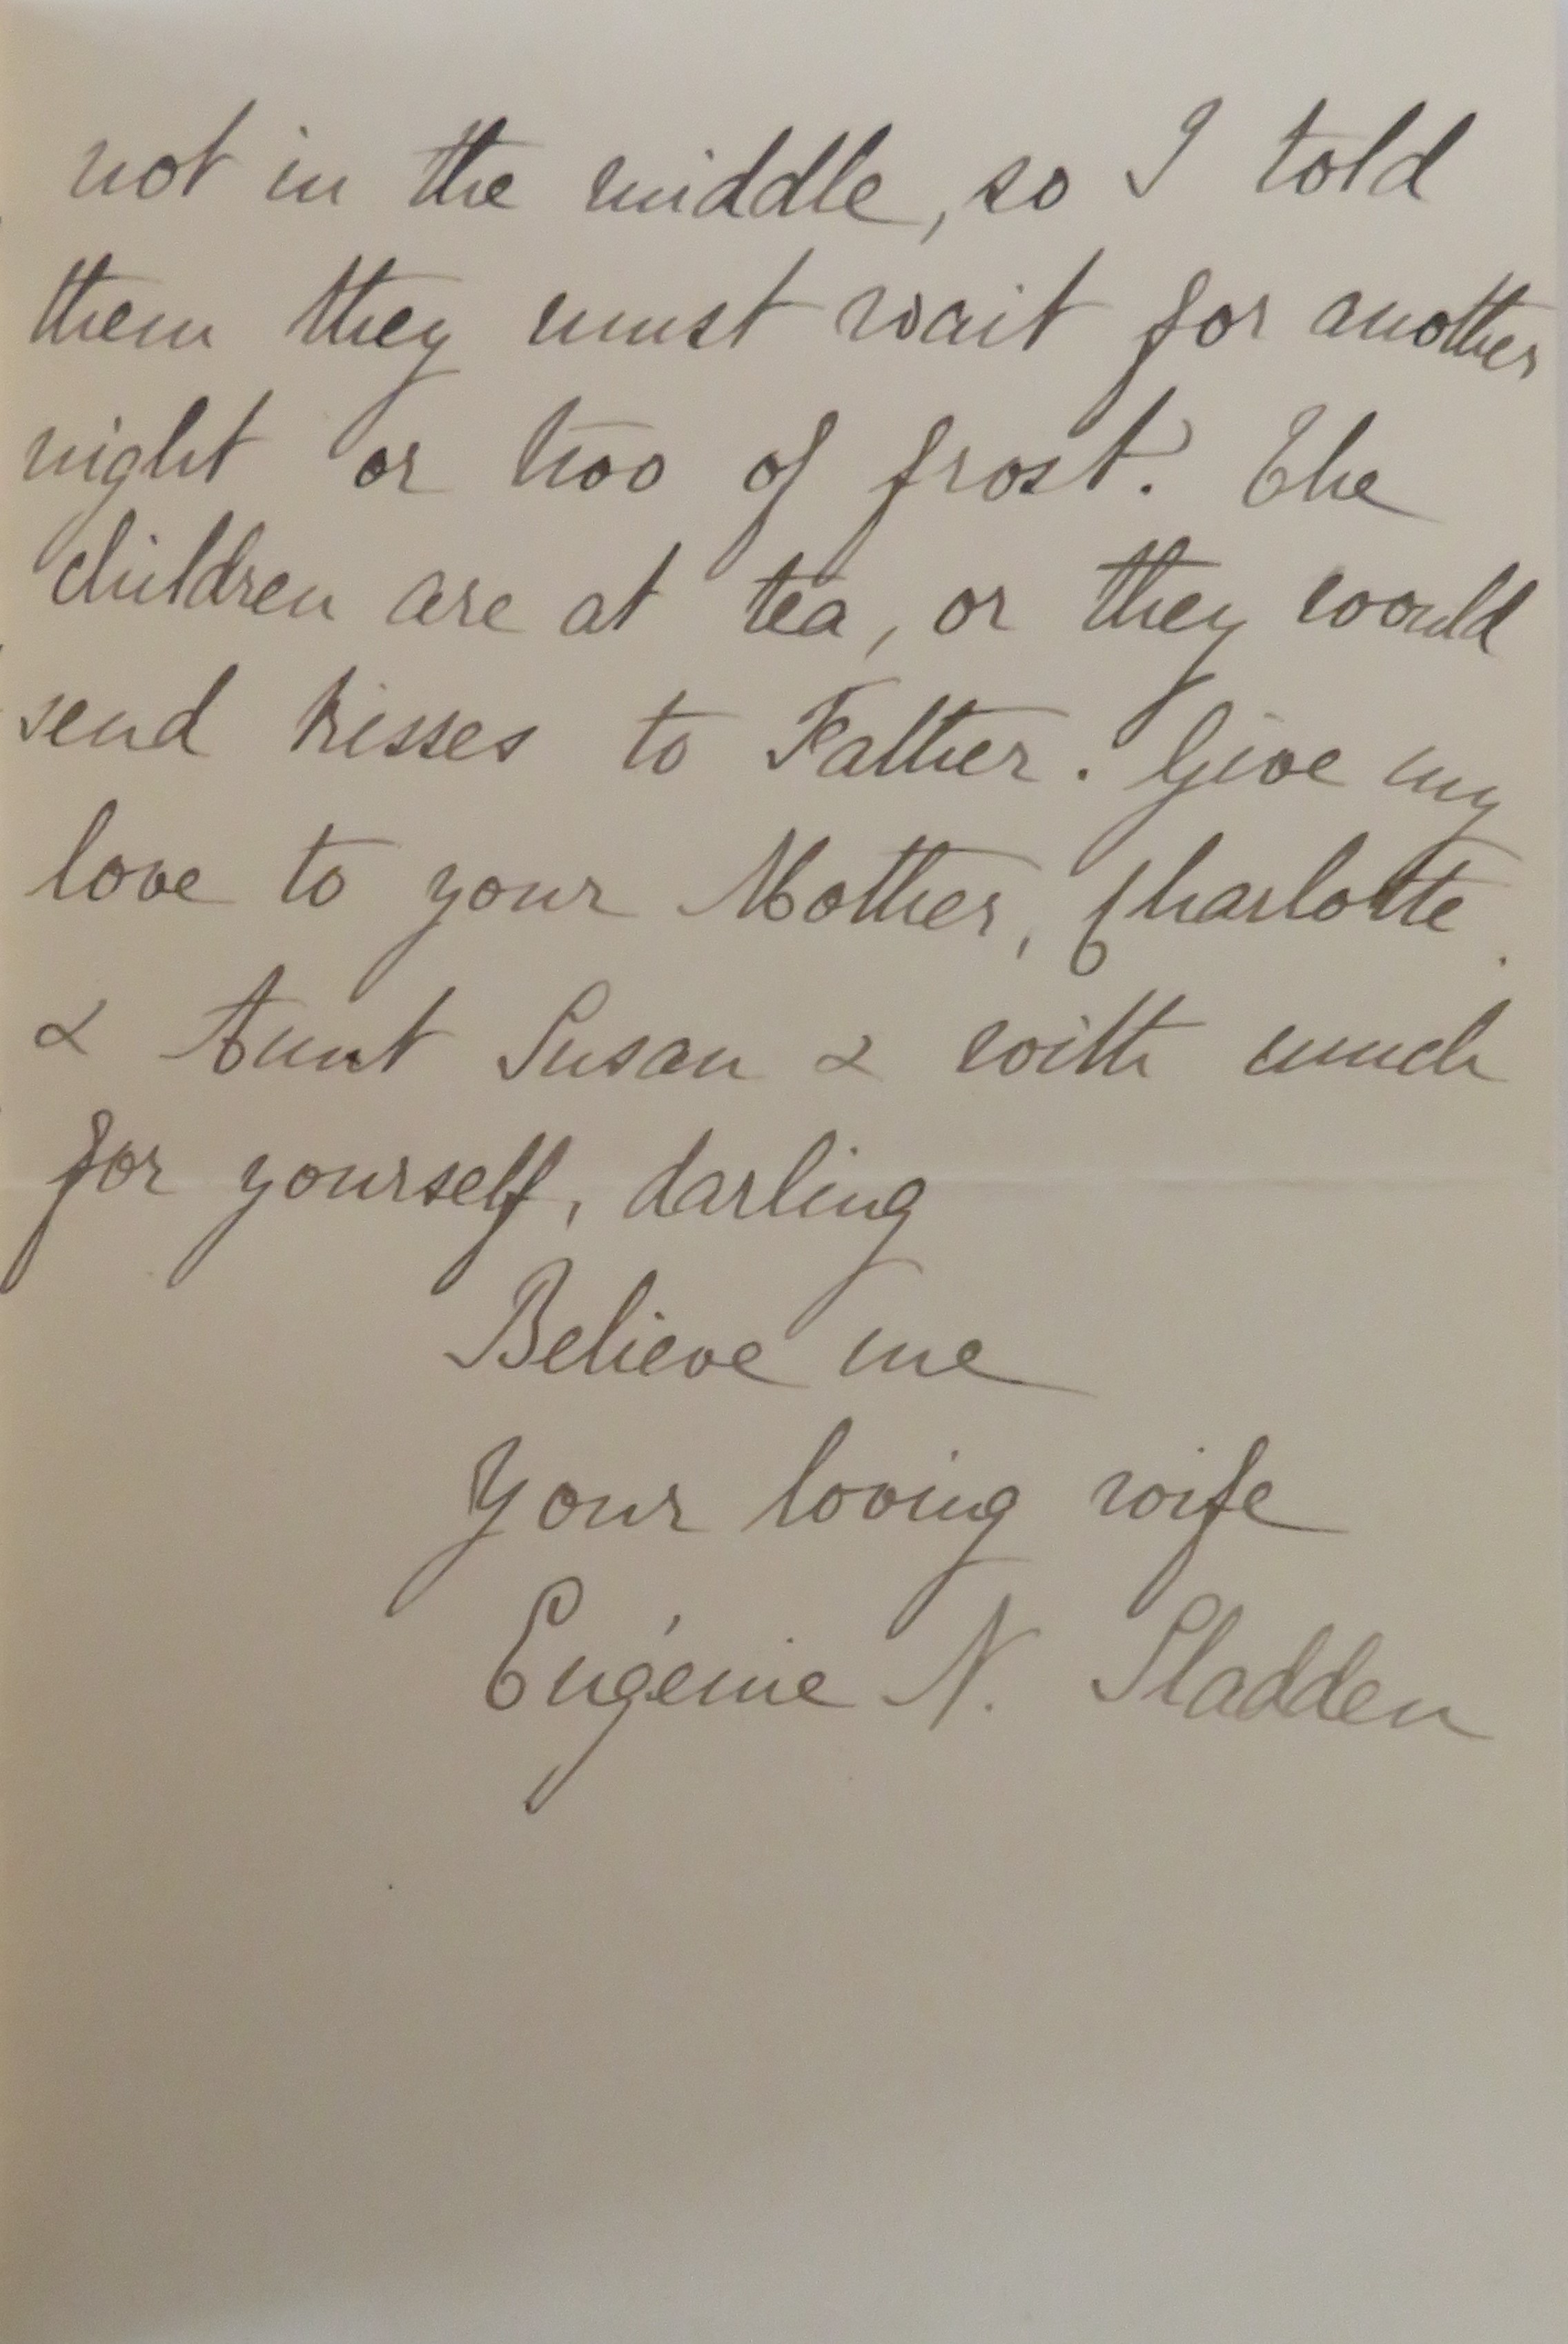 not in the middle, so I told
them they must wait for another
night or two of frost. The
children are at tea, or they would
send kisses to Father. Give my
love to your Mother, Charlotte
& Aunt Susan & with much
for yourself, darling
Believe me
Your loving wife
Eugénie N. Sladden